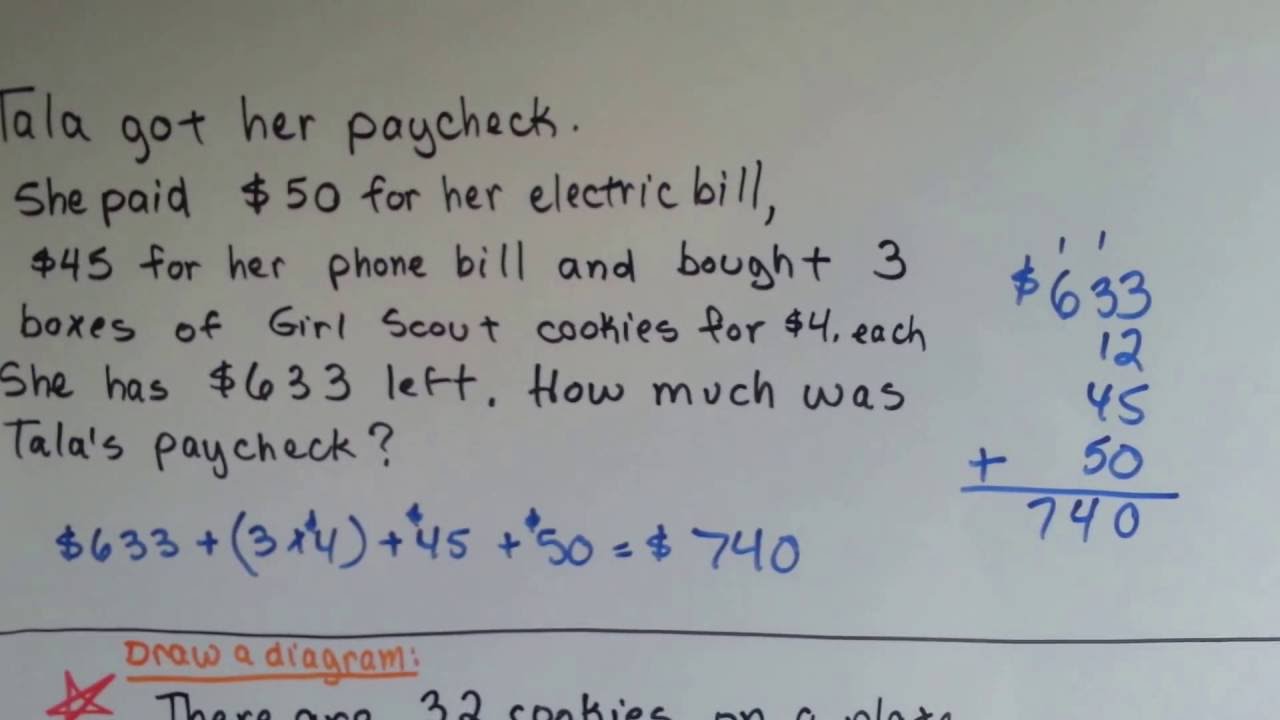 Tala got her paycheck.
She paid $50 for her electric bill,
$45 for her phone bill and bought 3
boxes of Girl Scout cookies for $4. each
She has $633 left. How much was
Tala's paycheck?
$633 + (3 x $4) + $45 + $50 = $740
1 1
$633
12
45
+ 50
740
Draw a diagram:
There are 32 cookies on a plate